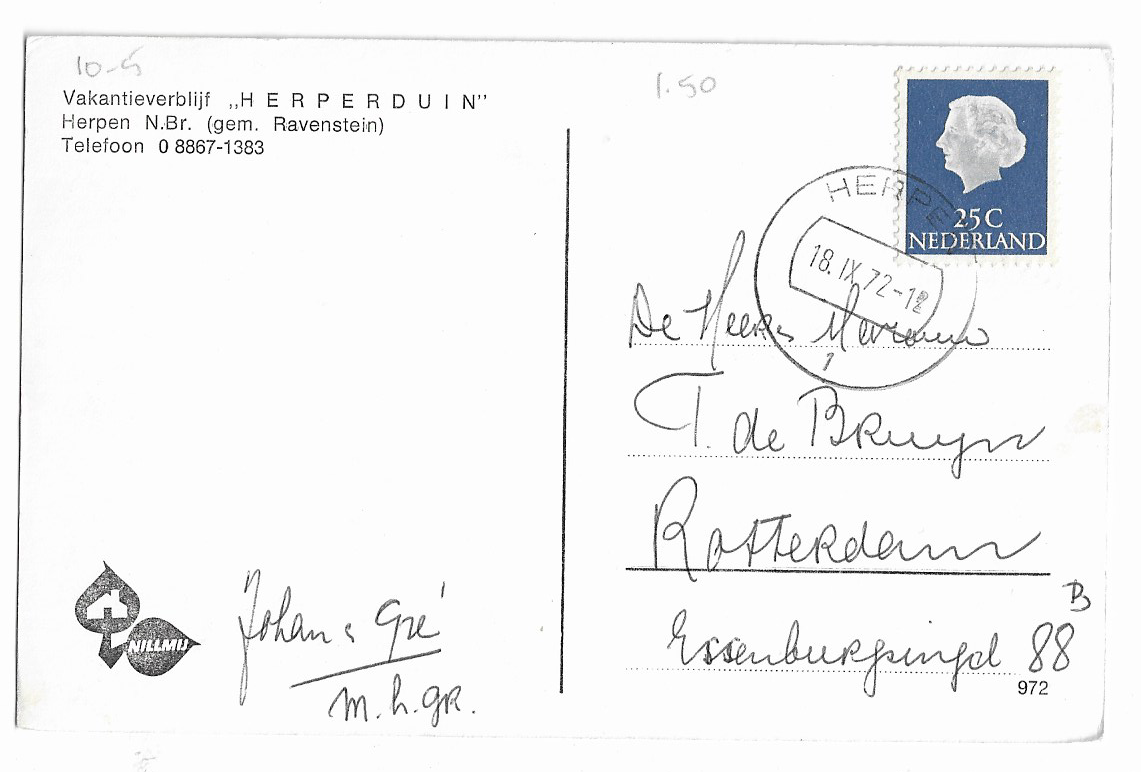 10-5
Vakantieverblijf „HERPERDUIN”
Herpen N.Br. (gem. Ravenstein)
Telefoon 0 8867-1383
1.50
25C
NEDERLAND
HERPEN
18.IX.72-12
1
De Heer
T. de Bruyn
Rotterdam
Essenburgsingel 88 B
972
NILLMIJ
Johan & Gré
m.h.gr.